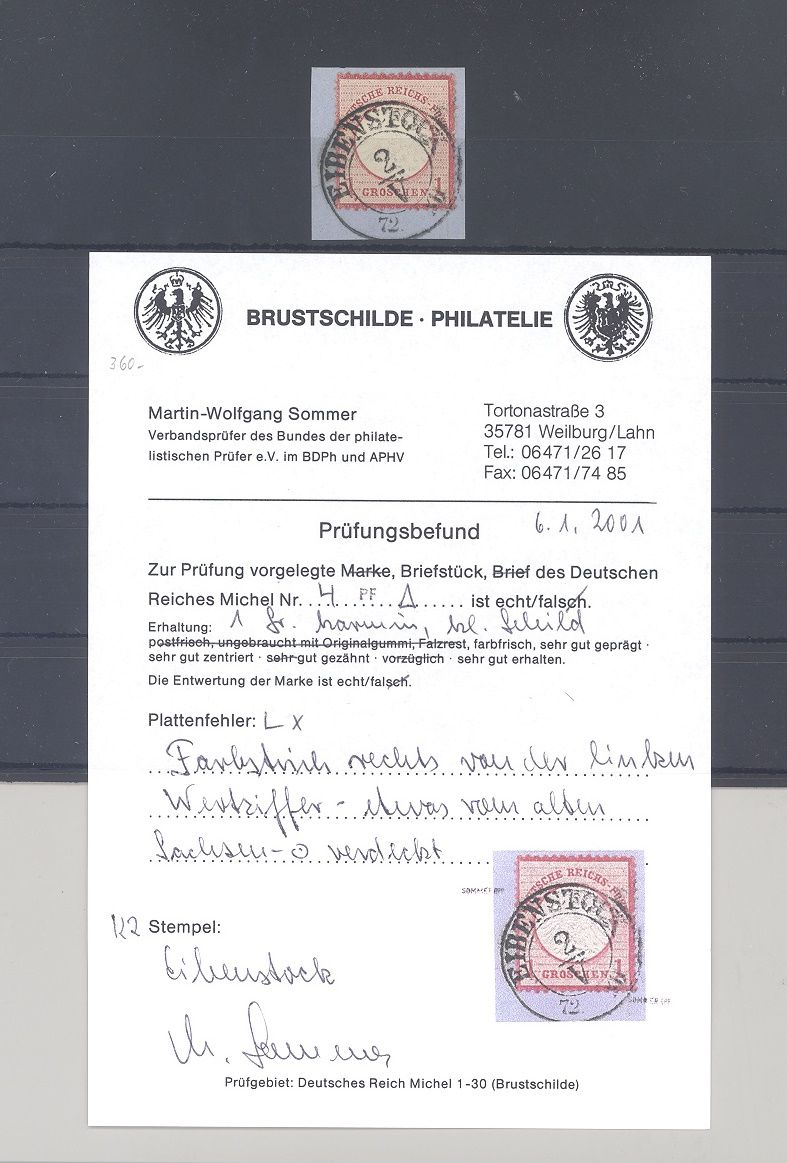 EIBENSTOCK
DEUTSCHE REICHS-POST
2/7
1 GROSCHEN 1
72.
BRUSTSCHILDE · PHILATELIE
360-
Martin-Wolfgang Sommer
Verbandsprüfer des Bundes der philate-
listischen Prüfer e.V. im BDPh und APHV
Tortonastraße 3
35781 Weilburg/Lahn
Tel.: 06471/26 17
Fax: 06471/74 85
Prüfungsbefund 6.1.2001
Zur Prüfung vorgelegte Marke, Briefstück, Brief des Deutschen
Reiches Michel Nr. 4 PF Δ ist echt/falsch.
Erhaltung: 1 Gr. karmin, kl. Schild
postfrisch, ungebraucht mit Originalgummi, Falzrest, farbfrisch, sehr gut geprägt ·
sehr gut zentriert · sehr gut gezähnt · vorzüglich · sehr gut erhalten.
Die Entwertung der Marke ist echt/falsch.
Plattenfehler: L X
Farbstrich rechts von der linken
Wertziffer - etwas vom alten
Sachsen-O verdeckt
SOMMER BPP
DEUTSCHE REICHS-POST
EIBENSTOCK
2/7
1 GROSCHEN 1
72.
SOMMER BPP
K2 Stempel:
Eibenstock
M. Sommer
Prüfgebiet: Deutsches Reich Michel 1-30 (Brustschilde)